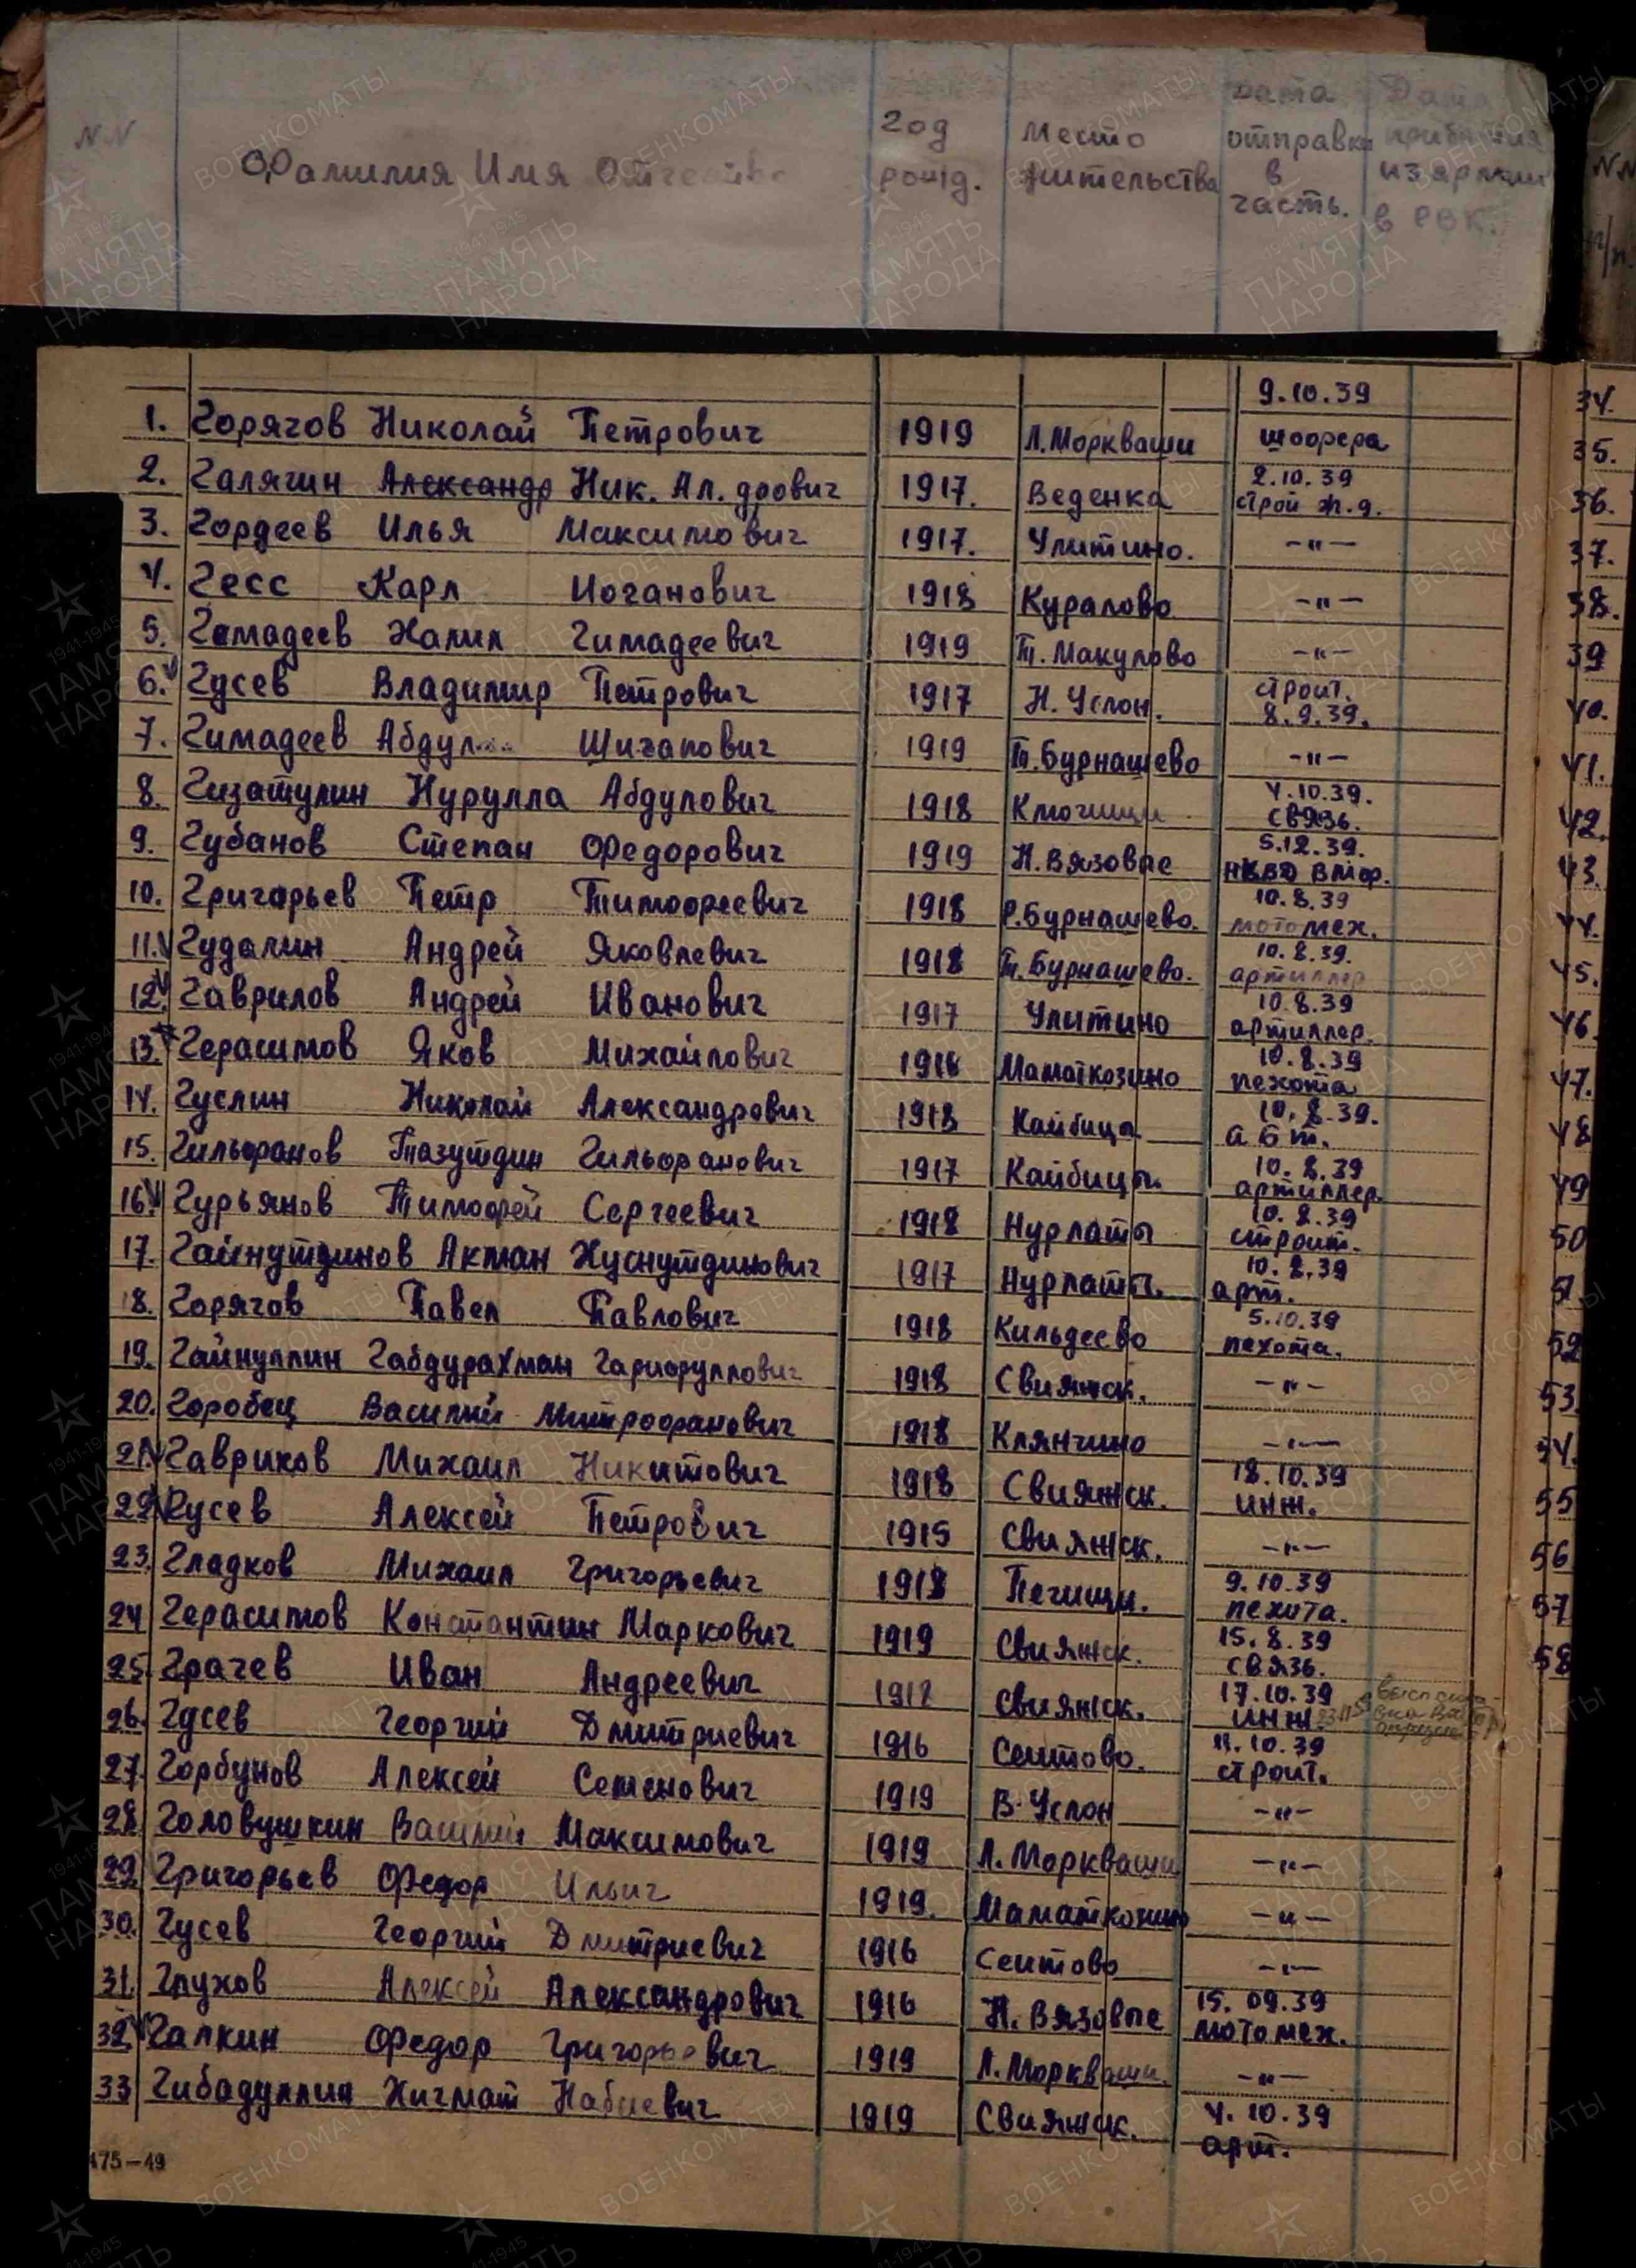 N.N Фамилия Имя Отчество Год рожд. Место жительства Дата отправки в часть. Дата прибытия из армии в РВК.
1. Горячов Николай Петрович 1919 Л.Моркваши 9.10.39 шофера
2. Галягин Александр Ник. Ал.дрович 1917. Веденка 2.10.39 строй ж.д.
3. Гордеев Илья Максимович 1917. Улитино. -"-
4. Гесс Карл Иоганович 1918 Куралово -"-
5. Гамадеев Халил Гимадеевич 1919 Т.Макулово -"-
6. Гусев Владимир Петрович 1917 Н.Услон. строит. 8.9.39.
7. Гимадеев Абдул Шигапович 1919 Т.Бурнашево -"-
8. Гизатулин Нурулла Абдулович 1918 Ключищи 4.10.39. связь.
9. Губанов Степан Федорович 1919 Н.Вязовые 5.12.39. НКВД
10. Григорьев Петр Тимофеевич 1918 Р.Бурнашево. 10.8.39 мотомех.
11. Гудалин Андрей Яковлевич 1918 Т.Бурнашево. 10.8.39. артиллер
12. Гаврилов Андрей Иванович 1917 Улитино 10.8.39 артиллер.
13. Герасимов Яков Михайлович 1918 Маматкозино 10.8.39 пехота
14. Гуслин Николай Александрович 1918 Кайбица 10.8.39. абт.
15. Гильфанов Тазутдин Гильфанович 1917 Кайбицы. 10.8.39 артиллер.
16. Гурьянов Тимофей Сергеевич 1918 Нурлаты 10.8.39 строит.
17. Гайнутдинов Акман Хуснутдинович 1917 Нурлаты. 10.8.39 арт.
18. Горячов Павел Павлович 1918 Кильдеево 5.10.39 пехота.
19. Гайнуллин Габдурахман Гарифуллович 1918 Свияжск. -"-
20. Горобец Василий Митрофанович 1918 Клянчино -"-
21. Гавриков Михаил Никитович 1918 Свияжск. 18.10.39 инж.
22. Гусев Алексей Петрович 1915 Свияжск. -"-
23. Гладков Михаил Григорьевич 1918 Печищи. 9.10.39 пехота.
24 Герасимов Константин Маркович 1919 Свияжск. 15.8.39 связь.
25. Грачев Иван Андреевич 1918 Свияжск. 17.10.39 инж.
26. Гусев Георгий Дмитриевич 1916 Сеитово. 11.10.39 строит.
27. Горбунов Алексей Семенович 1919 В.Услон -"-
28. Головушкин Василий Максимович 1919 Л.Моркваши -"-
29. Григорьев Федор Ильич 1919. Маматкозино -"-
30. Гусев Георгий Дмитриевич 1916 Сеитово -"-
31. Глухов Алексей Александрович 1916 Н.Вязовые 15.09.39 мотомех.
32. Галкин Федор Григорьевич 1919 Л.Моркваши. -"-
33 Гибадуллин Хигмат Набиевич 1919 Свияжск. 4.10.39 арт.
А75—49
N.N п/п.
34.
35.
36.
37.
38.
39
40.
41.
42.
43.
44.
45.
46.
47.
48
49
50
51.
52
53.
54.
55
56
57
58